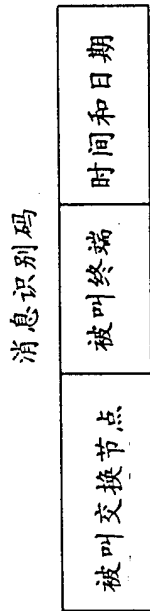 消息识别码
被叫交换节点
被叫终端
时间和日期